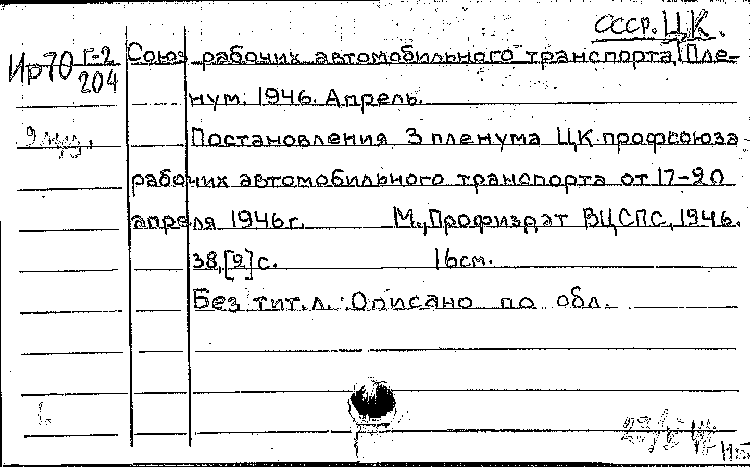 СССР. ЦК.
Ир70 Г-2
204
Союз рабочих автомобильного транспорта. Пле-
нум. 1946. Апрель.
Постановления 3 пленума ЦК профсоюза
рабочих автомобильного транспорта от 17-20
апреля 1946 г. М., Профиздат ВЦСПС, 1946.
38,[2] с. 16 см.
Без тит. л. Описано по обл.